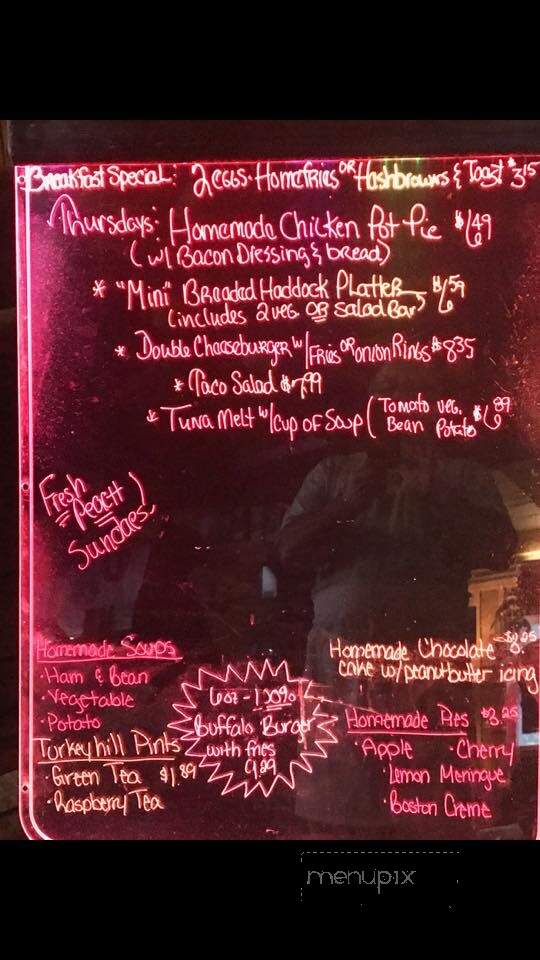 Breakfast Special: 2 eggs · Homefries OR Hashbrowns & Toast $3.15
Thursdays: Homemade Chicken Pot Pie $6.49
(w/ Bacon Dressing & bread)
* "Mini" Breaded Haddock Platter $6.59
(includes 2 veg OR Salad Bar)
* Double Cheeseburger w/ Fries OR onion Rings $8.35
* Taco Salad $7.99
* Tuna Melt w/ cup of Soup (Tomato veg. $6.89
Bean Potato
Fresh
Peach
Sundaes
Homemade Soups
· Ham & Bean
· Vegetable
· Potato
Turkeyhill Pints
· Green Tea $1.89
· Raspberry Tea
6oz - 100%
Buffalo Burger
with fries
9.89
Homemade Chocolate
cake w/ peanutbutter icing
Homemade Pies $3.25
· Apple · Cherry
· Lemon Meringue
· Boston Creme
menupix